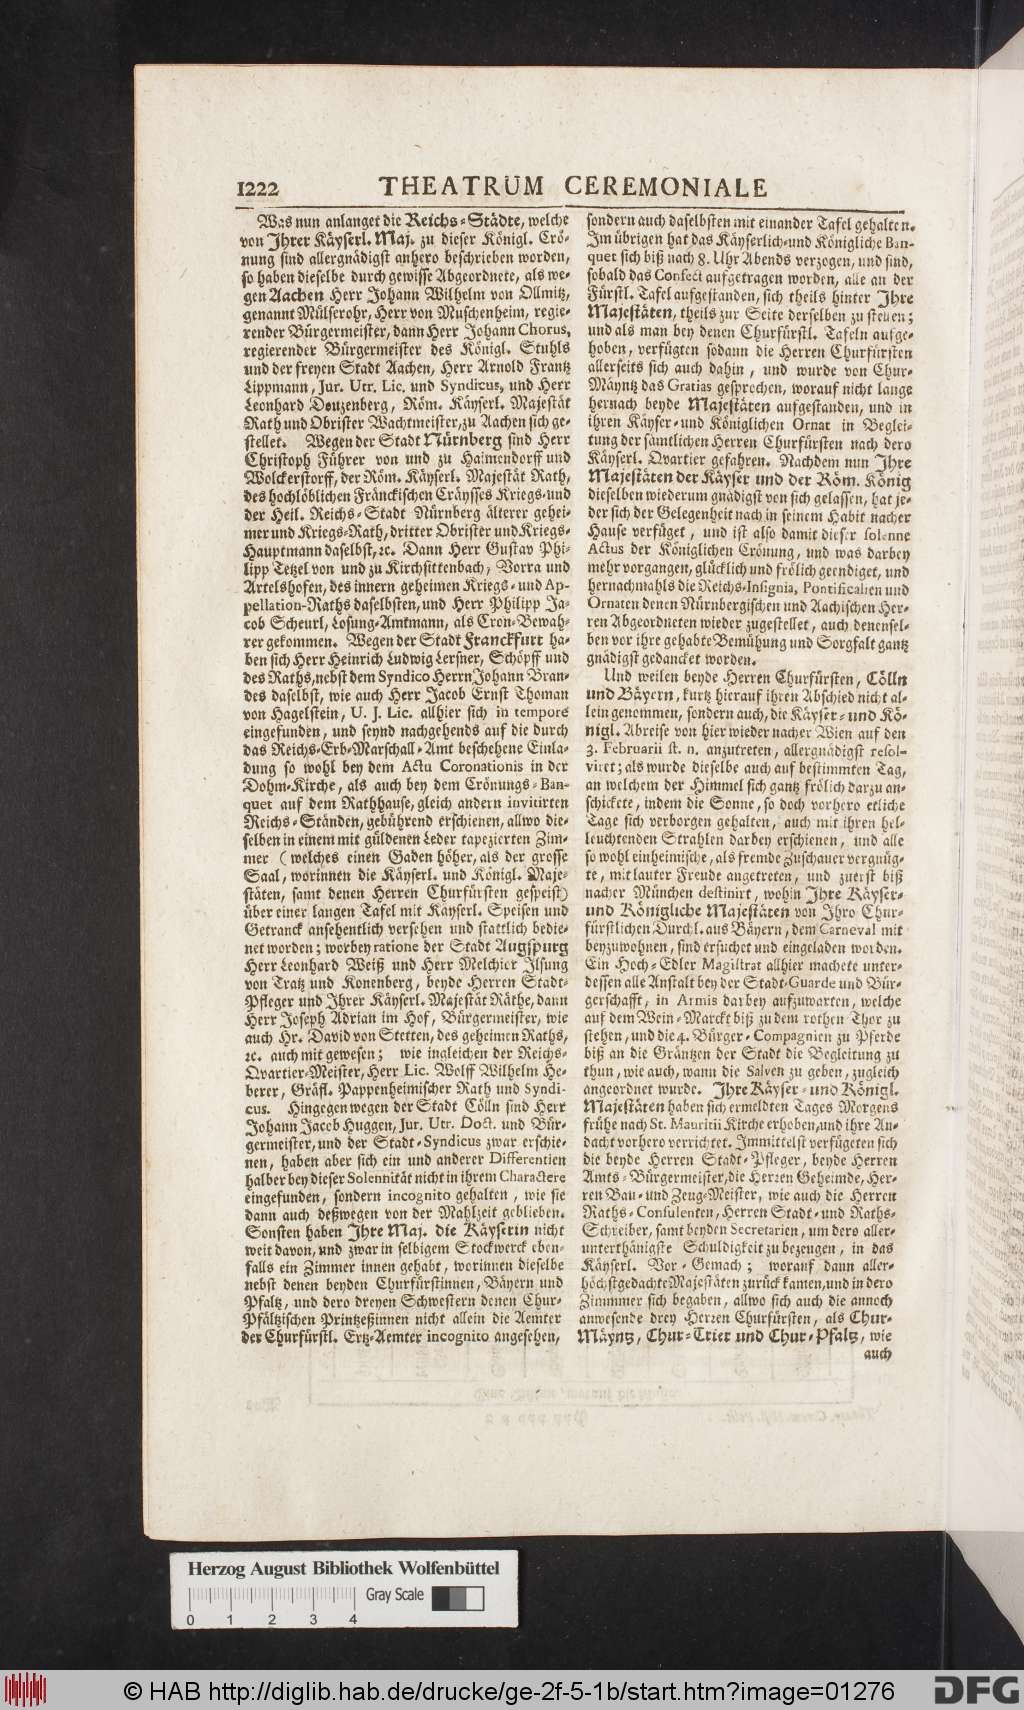 1222 THEATRUM CEREMONIALE
Was nun anlanget die Reichs-Städte, welche
von Ihrer Käyserl. Maj. zu dieser Königl. Crö-
nung sind allergnädigst anhero beschrieben worden,
so haben dieselbe durch gewisse Abgeordnete, als we-
gen Aachen Herr Johann Wilhelm von Ollmitz,
genannt Mülserohr, Herr von Muschenheim, regie-
render Bürgermeister, dann Herr Johann Chorus,
regierender Bürgermeister des Königl. Stuhls
und der freyen Stadt Aachen, Herr Arnold Frantz
Lippmann, Jur. Utr. Lic. und Syndicus, und Herr
Leonhard Douzenberg, Röm. Käyserl. Majestät
Rath und Obrister Wachtmeister, zu Aachen sich ge-
stellet. Wegen der Stadt Nürnberg sind Herr
Christoph Führer von und zu Haimendorff und
Wolckerstorff, der Röm. Käyserl. Majestät Rath,
des hochlöblichen Fränckischen Cräysses Kriegs-und
der Heil. Reichs-Stadt Nürnberg älterer gehei-
mer und Kriegs-Rath, dritter Obrister und Kriegs-
Hauptmann daselbst, ꝛc. Dann Herr Gustav Phi-
lipp Tetzel von und zu Kirchsittenbach, Vorra und
Artelshofen, des innern geheimen Kriegs- und Ap-
pellation-Raths daselbsten, und Herr Philipp Ja-
cob Scheurl, Losung-Amtmann, als Cron-Bewah-
rer gekommen. Wegen der Stadt Franckfurt ha-
ben sich Herr Heinrich Ludwig Lersner, Schöpff und
des Raths, nebst dem Syndico Herrn Johann Bran-
des daselbst, wie auch Herr Jacob Ernst Thoman
von Hagelstein, U. J. Lic. allhier sich in tempore
eingefunden, und seynd nachgehends auf die durch
das Reichs-Erb-Marschall-Amt beschehene Einla-
dung so wohl bey dem Actu Coronationis in der
Dohm-Kirche, als auch bey dem Crönungs-Ban-
quet auf dem Rathhause, gleich andern invitirten
Reichs-Ständen, gebührend erschienen, allwo die-
selben in einem mit güldenen Leder tapezierten Zim-
mer (welches einen Gaden höher, als der grosse
Saal, worinnen die Käyserl. und Königl. Maje-
stäten, samt denen Herren Churfürsten gespeist)
über einer langen Tafel mit Käyserl. Speisen und
Getranck ansehentlich versehen und stattlich bedie-
net worden; worbey ratione der Stadt Augspurg
Herr Leonhard Weiß und Herr Melchior Ilsung
von Tratz und Konenberg, beyde Herren Stadt-
Pfleger und Ihrer Käyserl. Majestät Räthe, dann
Herr Joseph Adrian im Hof, Bürgermeister, wie
auch Hr. David von Stetten, des geheimen Raths,
ꝛc. auch mit gewesen; wie ingleichen der Reichs-
Qvartier-Meister, Herr Lic. Wolff Wilhelm He-
berer, Gräfl. Pappenheimischer Rath und Syndi-
cus. Hingegen wegen der Stadt Cölln sind Herr
Johann Jacob Huggen, Jur. Utr. Doct. und Bür-
germeister, und der Stadt-Syndicus zwar erschie-
nen, haben aber sich ein und anderer Differentien
halber bey dieser Solennität nicht in ihrem Charactere
eingefunden, sondern incognito gehalten, wie sie
dann auch deßwegen von der Mahlzeit geblieben.
Sonsten haben Ihre Maj. die Käyserin nicht
weit davon, und zwar in selbigem Stockwerck eben-
falls ein Zimmer innen gehabt, worinnen dieselbe
nebst denen beyden Churfürstinnen, Bäyern und
Pfaltz, und dero dreyen Schwestern denen Chur-
Pfältzischen Printzeßinnen nicht allein die Aemter
der Churfürstl. Ertz-Aemter incognito angesehen,
sondern auch daselbsten mit einander Tafel gehalten.
Im übrigen hat das Käyserlich-und Königliche Ban-
quet sich biß nach 8. Uhr Abends verzogen, und sind,
sobald das Confect aufgetragen worden, alle an der
Fürstl. Tafel aufgestanden, sich theils hinter Ihre
Majestäten, theils zur Seite derselben zu stellen;
und als man bey denen Churfürstl. Tafeln aufge-
hoben, verfügten sodann die Herren Churfürsten
allerseits sich auch dahin, und wurde von Chur-
Mäyntz das Gratias gesprochen, worauf nicht lange
hernach beyde Majestäten aufgestanden, und in
ihren Käyser- und Königlichen Ornat in Beglei-
tung der sämtlichen Herren Churfürsten nach dero
Käyserl. Qvartier gefahren. Nachdem nun Ihre
Majestäten der Käyser und der Röm. König
dieselben wiederum gnädigst von sich gelassen, hat je-
der sich der Gelegenheit nach in seinem Habit nacher
Hause verfüget, und ist also damit dieser solenne
Actus der Königlichen Crönung, und was darbey
mehr vorgangen, glücklich und frölich geendiget, und
hernachmahls die Reichs-Insignia, Pontificalien und
Ornaten denen Nürnbergischen und Aachischen Her-
ren Abgeordneten wieder zugestellet, auch denensel-
ben vor ihre gehabte Bemühung und Sorgfalt gantz
gnädigst gedancket worden.
Und weilen beyde Herren Churfürsten, Cölln
und Bäyern, kurtz hierauf ihren Abschied nicht al-
lein genommen, sondern auch, die Käyser- und Kö-
nigl. Abreise von hier wieder nacher Wien auf den
3. Februarii st. n. anzutreten, allergnädigst resol-
viret; als wurde dieselbe auch auf bestimmten Tag,
an welchem der Himmel sich gantz frölich darzu an-
schickete, indem die Sonne, so doch vorhero etliche
Tage sich verborgen gehalten, auch mit ihren hel-
leuchtenden Strahlen darbey erschienen, und alle
so wohl einheimische, als fremde Zuschauer vergnüg-
te, mit lauter Freude angetreten, und zuerst biß
nacher München destinirt, wohin Ihre Käyser-
und Königliche Majestäten von Ihro Chur-
fürstlichen Durchl. aus Bäyern, dem Carneval mit
beyzuwohnen, sind ersuchet und eingeladen worden.
Ein Hoch-Edler Magistrat allhier machete unter-
dessen alle Anstalt bey der Stadt-Guarde und Bür-
gerschafft, in Armis darbey aufzuwarten, welche
auf dem Wein-Marckt biß zu dem rothen Thor zu
stehen, und die 4. Bürger-Compagnien zu Pferde
biß an die Gräntzen der Stadt die Begleitung zu
thun, wie auch, wann die Salven zu geben, zugleich
angeordnet wurde. Ihre Käyser-und Königl.
Majestäten haben sich ermeldten Tages Morgens
frühe nach St. Mauritii Kirche erhoben, und ihre An-
dacht vorhero verrichtet. Immittelst verfügeten sich
die beyde Herren Stadt-Pfleger, beyde Herren
Amts-Bürgermeister, die Herren Geheimde, Her-
ren Bau-und Zeug-Meister, wie auch die Herren
Raths-Consulenten, Herren Stadt-und Raths-
Schreiber, samt beyden Secretarien, um dero aller-
unterthänigste Schuldigkeit zu bezeugen, in das
Käyserl. Vor-Gemach; worauf dann aller-
höchstgedachte Majestäten zurück kamen, und in dero
Zimmer sich begaben, allwo sich auch die annoch
anwesende drey Herren Churfürsten, als Chur-
Mäyntz, Chur-Trier und Chur-Pfaltz, wie
auch
Herzog August Bibliothek Wolfenbüttel
Gray Scale
0 1 2 3 4
© HAB http://diglib.hab.de/drucke/ge-2f-5-1b/start.htm?image=01276
DFG